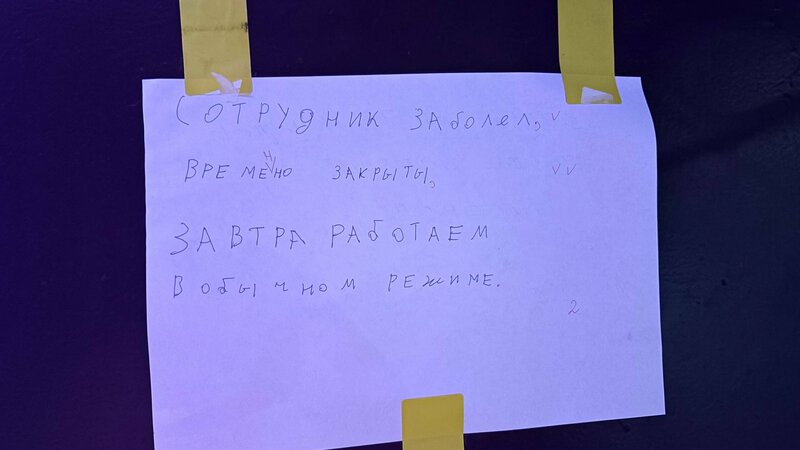 Сотрудник заболел, v
Време н но закрыты, v v
Завтра работаем
в обычном режиме.
2